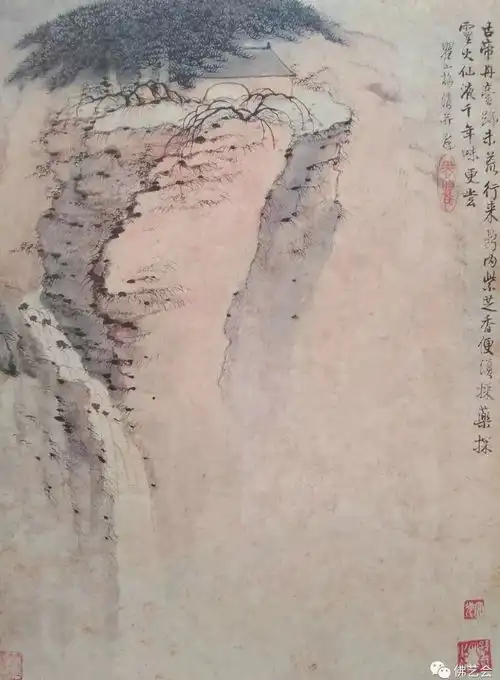 古帝丹臺跡未荒行来鼎内紫芝香便須採藥探
靈火仙液千年味更嘗
瞿山梅清并
佛艺会